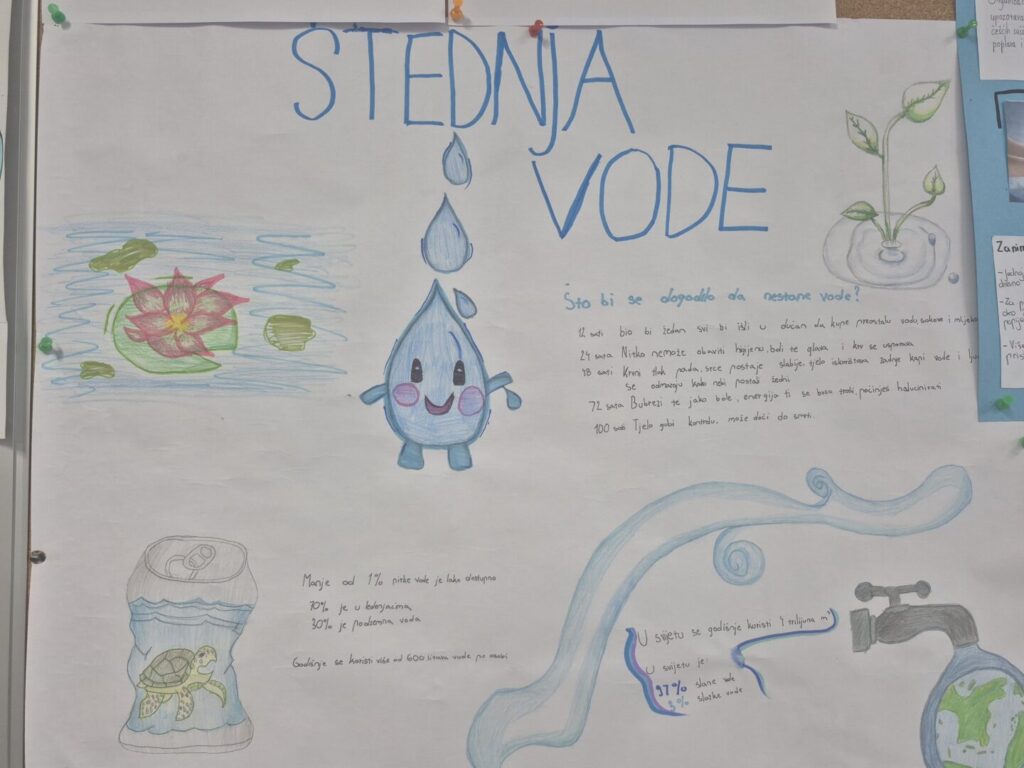 ŠTEDNJA
VODE
Što bi se dogodilo da nestane vode?
12 sati bio bi žedan svi bi išli u dućan da kupe preostalu vodu, sokove i mlijeko
24 sata Nitko nemože obaviti higijenu, boli te glava i krv se usporava
48 sati Krvni tlak pada, srce postaje slabije, tijelo iskorištava zadnje kapi vode i
se odmaraju kako nebi postali žedni
72 sata Bubrezi te jako bole, energija ti se brzo troši, počinješ halucinirati
100 sati Tjelo gubi kontrolu, može doći do smrti.
Manje od 1% pitke vode je lako dostupno
70% je u
30% je podzemna voda
Godišnje se koristi više od 600 litara vode po osobi
U svijetu se godišnje koristi 4 trilijuna m³
U svijetu je:
97% slane vode
3% slatke vode
Zanim
- Jedna
- Za p
- Viš